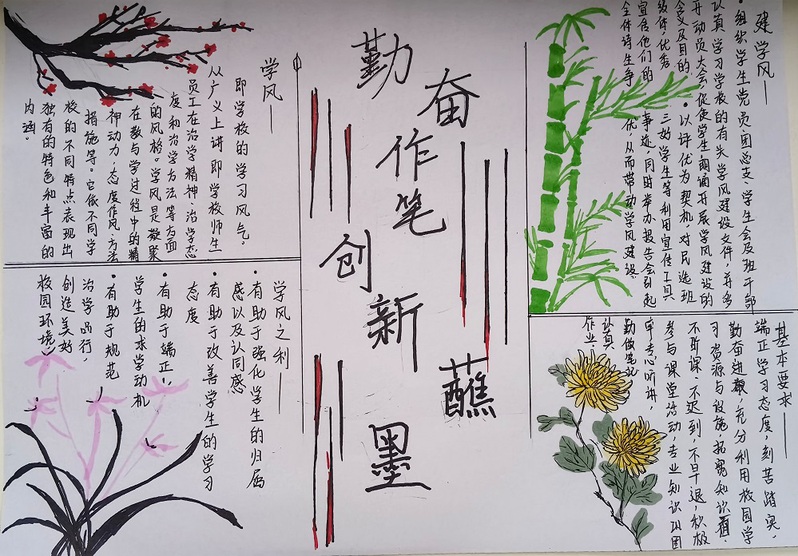 建学风——
·组织学生党员、团总支、学生会及班干部
认真学习学校的有关学风建设文件，并召
开动员大会，促使学生明确开展学风建设的
含义及目的。·以评优为契机，对民选班
级体、优秀
三好学生等利用宣传工具
宣传他们的
事迹，同时举办报告会引起
全体师生争
优，从而带动学风建设。
基本要求——
端正学习态度，刻苦踏实，
勤奋进取，充分利用校园学
习资源与设施，拓宽知识面，
不旷课，不迟到，不早退，积极
参与课堂活动，专业知识
牢，专心听讲，
勤做笔记
认真
作业。
勤奋作笔
创新蘸墨
学风——
即学校的学习风气，
从广义上讲，即学校师生
员工在治学精神、治学态
度和治学方法等方面
的风格。学风是凝聚
在教与学过程中的精
神动力、态度作风、方法
措施等。它依不同学
校的不同特点表现出
独有的特色和丰富的
内涵。
学风之利——
·有助于强化学生的归属
感以及认同感
·有助于改善学生的学习
态度
·有助于端正
学生的求学动机
·有助于规范
治学品行，
创造美好
校园环境